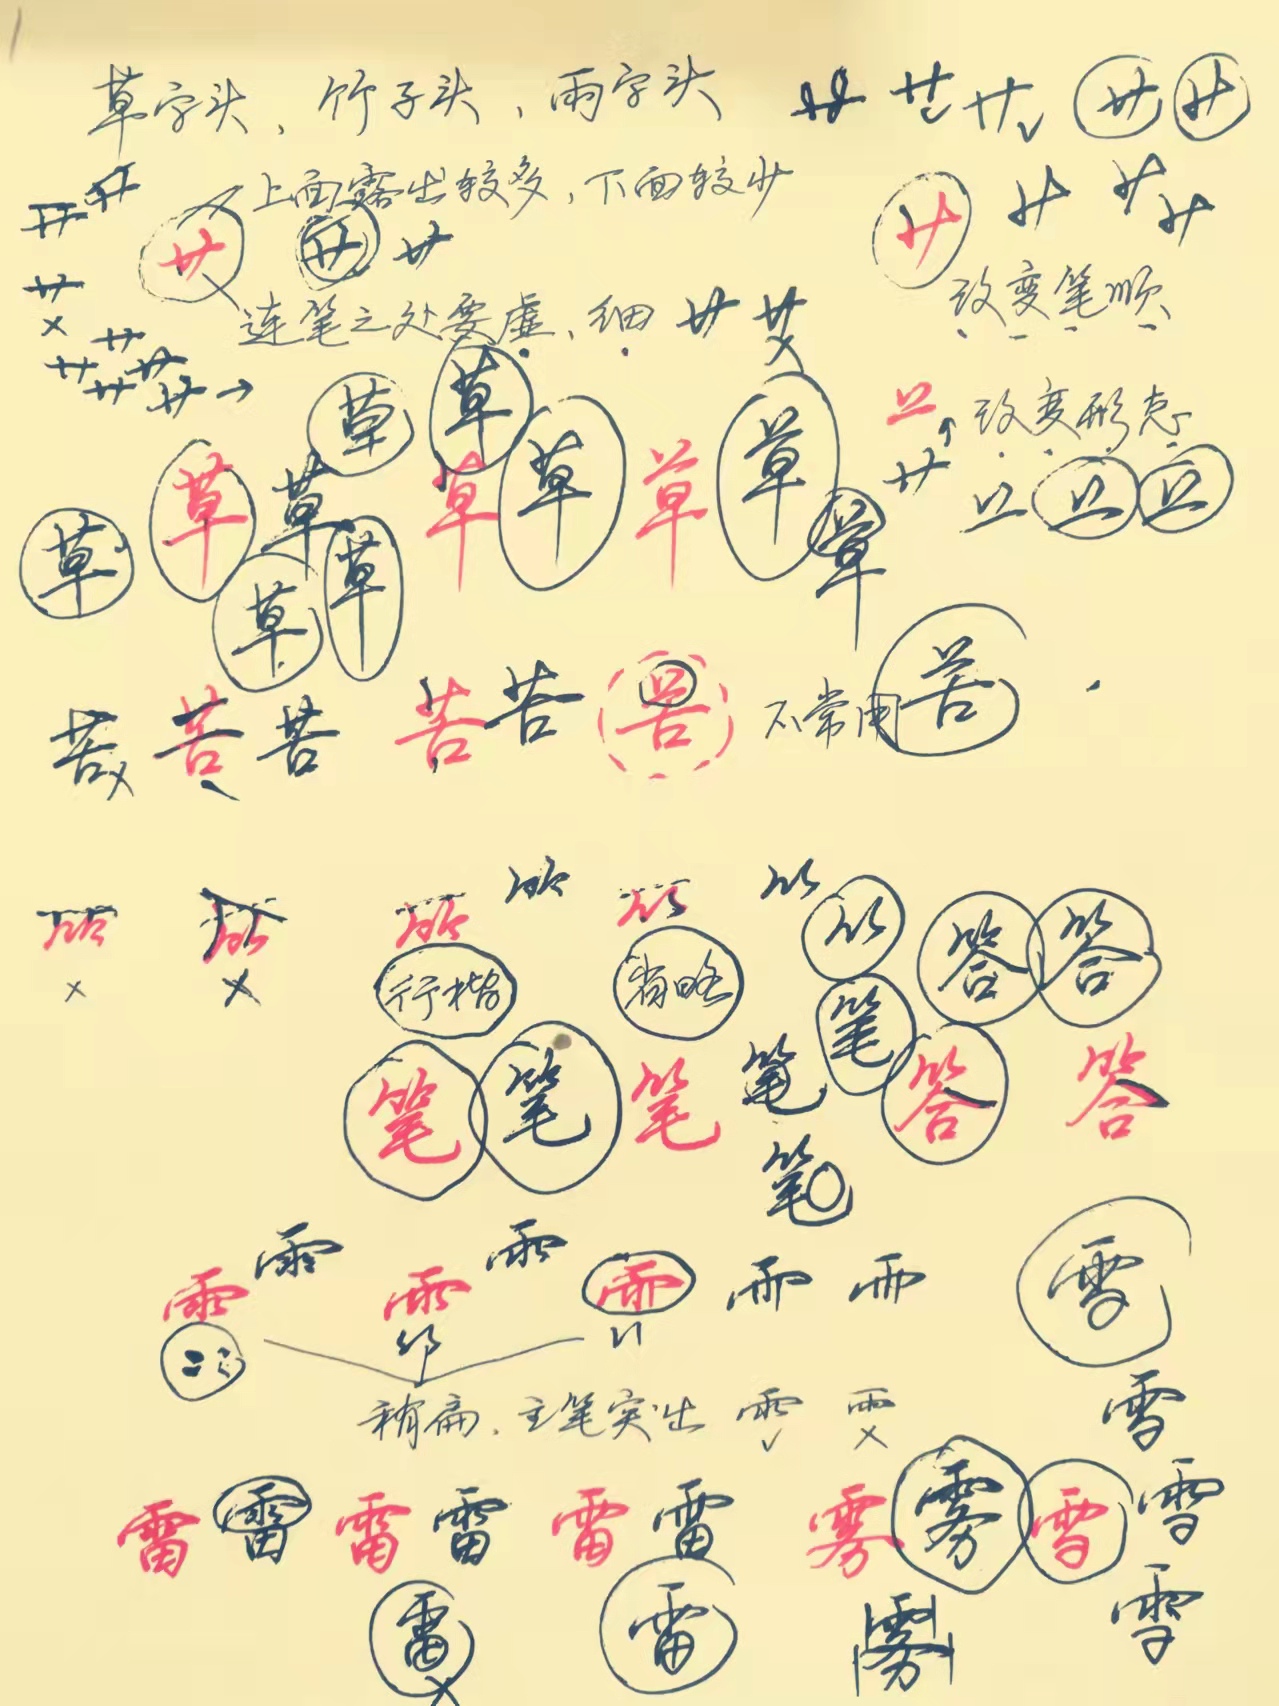 草字头、竹子头、雨字头 艹 艹 艹 艹 艹
上面露出较多、下面较少
艹 艹 艹 艹 艹 艹 艹
连笔之处要虚、细 艹 艹 改变笔顺
改变形态
草 草 草 草 草 草 草 草 草 草 草 草
苦 苦 苦 苦 苦 苦 不常用 苦
答 答
行楷 省略
笔 笔 笔 笔 笔 答 答
笔
雪
稍扁、主笔突出
雪
雷 雷 雷 雷 雷 雷 雾 雾 雪 雪
雷 雷 雾 雪